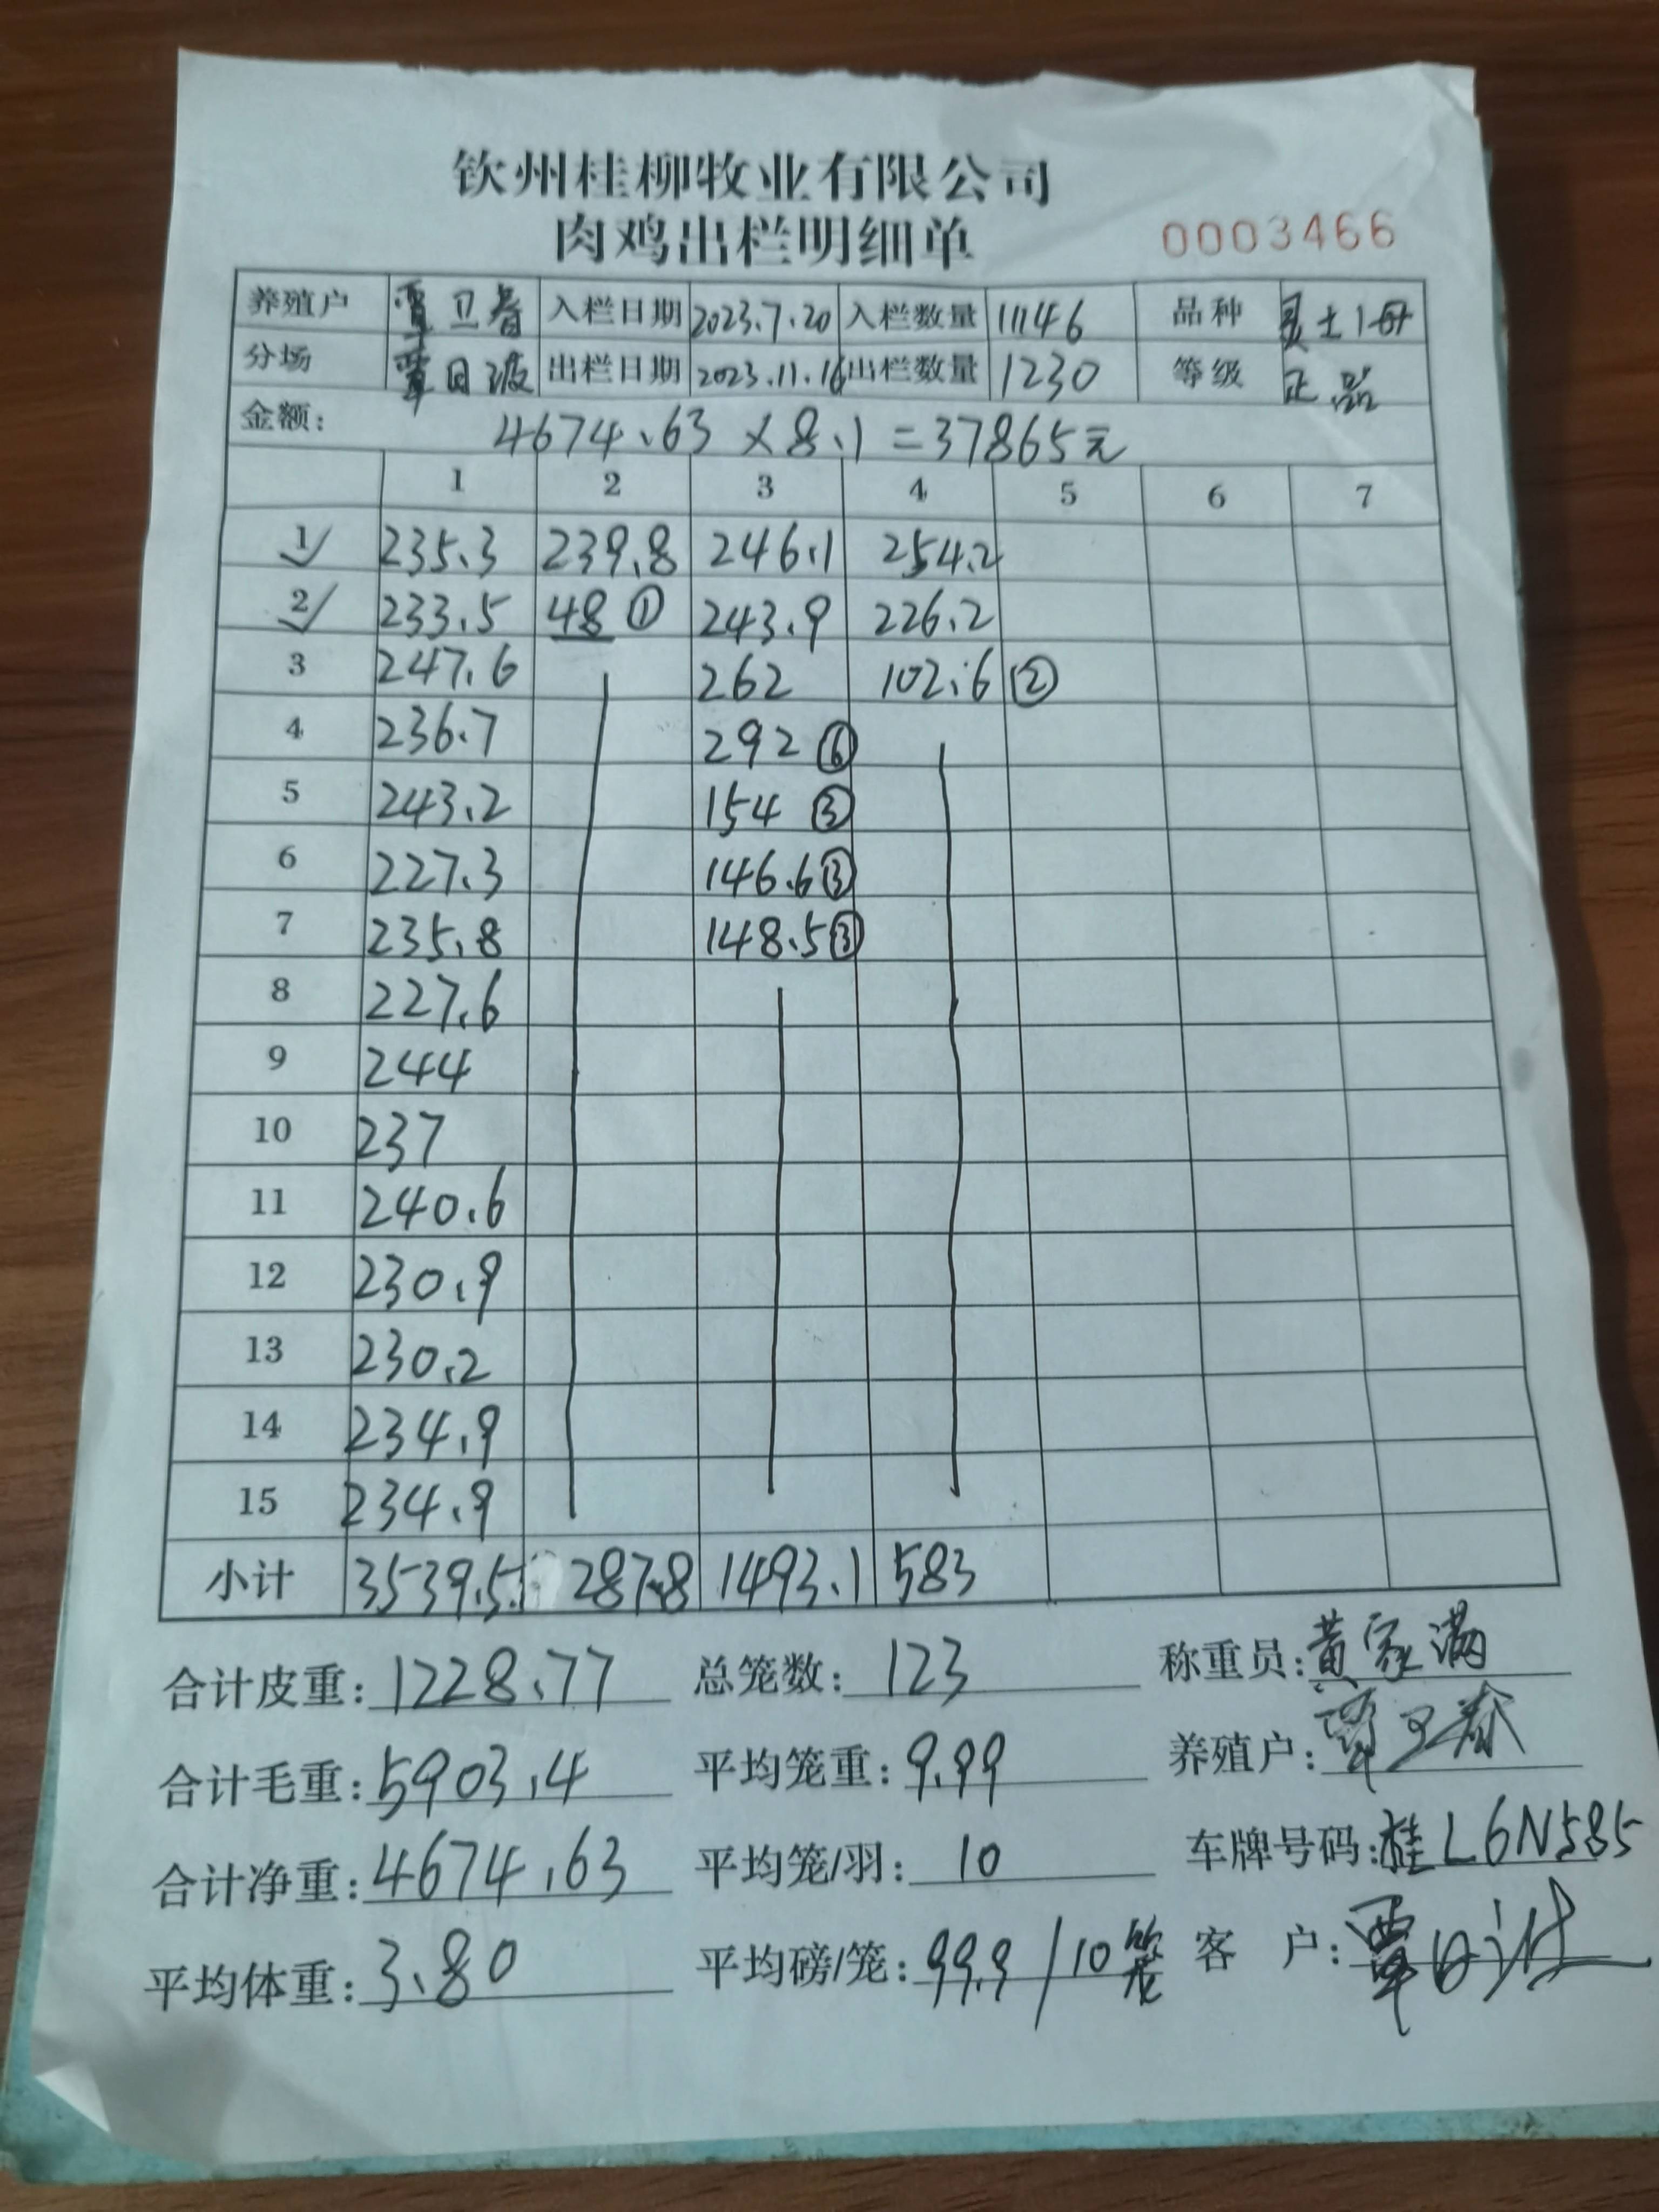 钦州桂柳牧业有限公司
肉鸡出栏明细单
0003466
养殖户 覃卫春 入栏日期 2023.7.20 入栏数量 11146 品种 灵土1母
分场 覃日波 出栏日期 2023.11.16 出栏数量 1230 等级 正品
金额: 4674.63×8.1=37865元
1 2 3 4 5 6 7
1 235.3 239.8 246.1 254.2
2 233.5 48① 243.9 226.2
3 247.6 262 102.6②
4 236.7 292⑥
5 243.2 154③
6 227.3 146.6③
7 235.8 148.5③
8 227.6
9 244
10 237
11 240.6
12 230.9
13 230.2
14 234.9
15 234.9
小计 3539.5 287.8 1493.1 583
合计皮重: 1228.77 总笼数: 123 称重员: 黄家满
合计毛重: 5903.4 平均笼重: 9.99 养殖户: 覃卫春
合计净重: 4674.63 平均笼/羽: 10 车牌号码: 桂L6N585
平均体重: 3.80 平均磅/笼: 99.9/10笼 客户: 覃日波